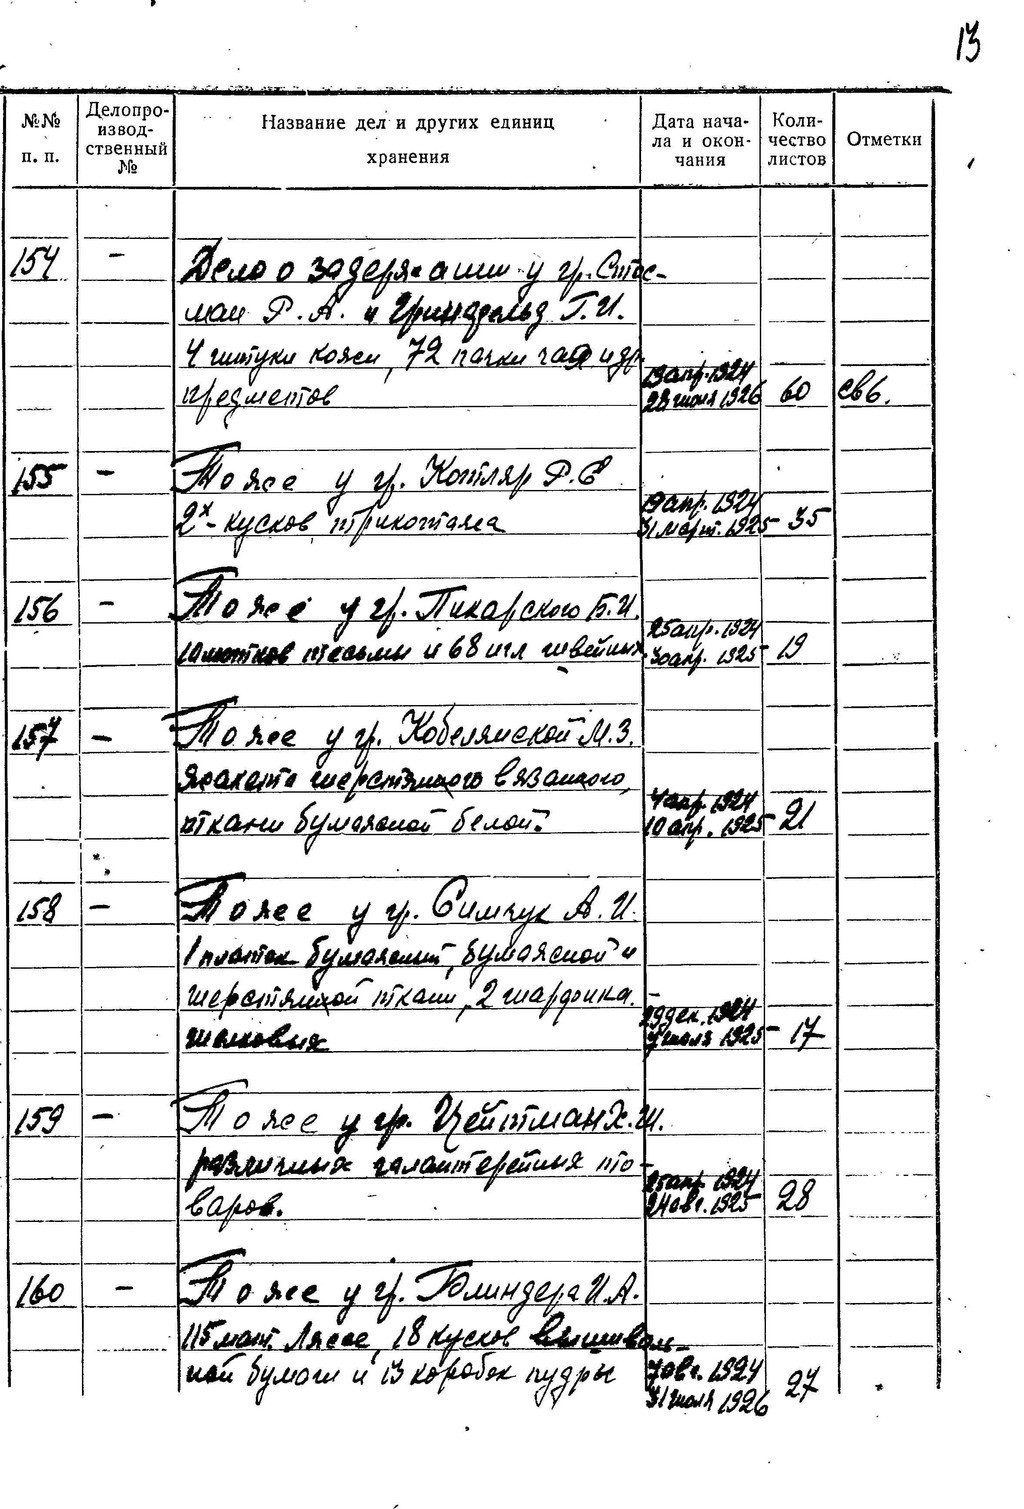 13
№№ п. п.
Делопроизводственный №
Название дел и других единиц хранения
Дата начала и окончания
Количество листов
Отметки
154 - Дело о задержании у гр. Стос-
ман Р. А. и Гринфельд Г. И.
4 штуки кожи, 72 пачки чая и др.
предметов 19 апр. 1924 28 июня 1926 60 св6.
155 - То же у гр. Котляр Р. Е
2х - кусков трикотажа 19 апр. 1924 31 март. 1925 35
156 - То же у гр. Пикарского Б. И.
10 мотков тесьмы и 68 игл швейных 25 апр. 1924 30 апр. 1925 19
157 - То же у гр. Кобелянской М. З.
жакета шерстяного вязаного,
ткани бумажной белой. 4 апр. 1924 10 апр. 1925 21
158 - То же у гр. Симчук А. И.
1 платок бумажный, бумажной и
шерстяной ткани, 2 шарфика
шелковых 29 дек. 1924 июля 1925 17
159 - То же у гр. Цейтман Х. Ш.
различных галантерейных то-
варов. 25 апр. 1924 24 авг. 1925 28
160 - То же у гр. Блиндера И. А.
115 мот. Лясе, 18 кусков вышиваль-
ной бумаги и 13 коробок пудры 7 авг. 1924 31 июля 1926 27